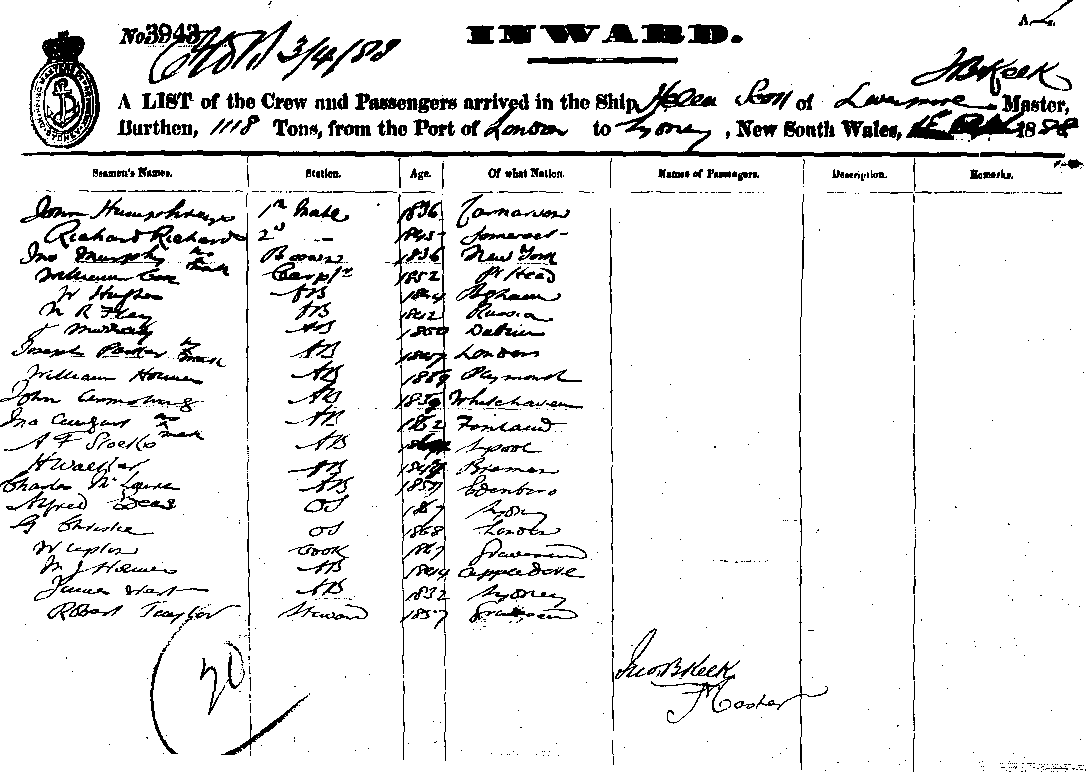 No 3943 INWARD.
3/4/88
J B Keek
A LIST of the Crew and Passengers arrived in the Ship Helen Scott of Master,
Burthen, 1118 Tons, from the Port of London to Sydney, New South Wales, 1888
Seamen's Names. Station. Age. Of what Nation. Names of Passengers. Description. Remarks.
John Humphreys 1st Mate 1836 Carnarvon
Richard Richards 2d — 1845 Somerset
Jno Murphy his mark Bosun 1836 New York
William Cox Carptr 1852 Pt Head
W Hughes AB 1844
AB 1842 Russia
J Murray AB 1850 Dublin
Joseph Parker his mark AB 1847 London
William Holmes AB 1859 Plymouth
John Armstrong AB 1839 Whitehaven
Jno his mark AB 1852 Finland
A F AB Lpool
H Walker AB Bremen
Charles McLaren AB 1857 Edenboro
Alfred OS 1867 Sydney
G Christie OS 1868 London
W Cook 1867 Gravesend
W J Holmes AB 1844 Appledore
James West AB 1832 Sydney
Robert Taylor Steward 1857 Gravesend
20
Jno B Keek
Master